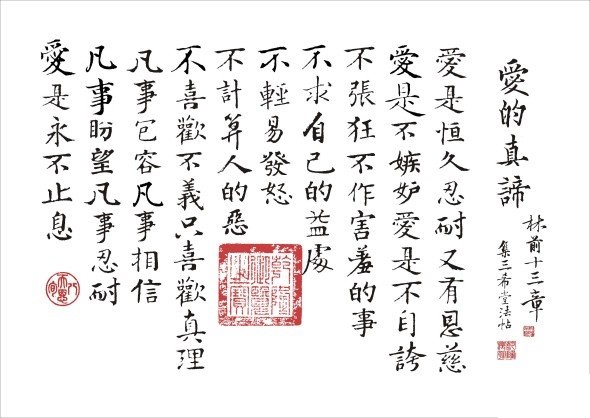 愛的真諦
林前十三章
集三希堂法帖
愛是恒久忍耐又有恩慈
愛是不嫉妒愛是不自誇
不張狂不作害羞的事
不求自己的益處
不輕易發怒
不計算人的惡
不喜歡不義只喜歡真理
凡事包容凡事相信
凡事盼望凡事忍耐
愛是永不止息
乾隆御覽之寶